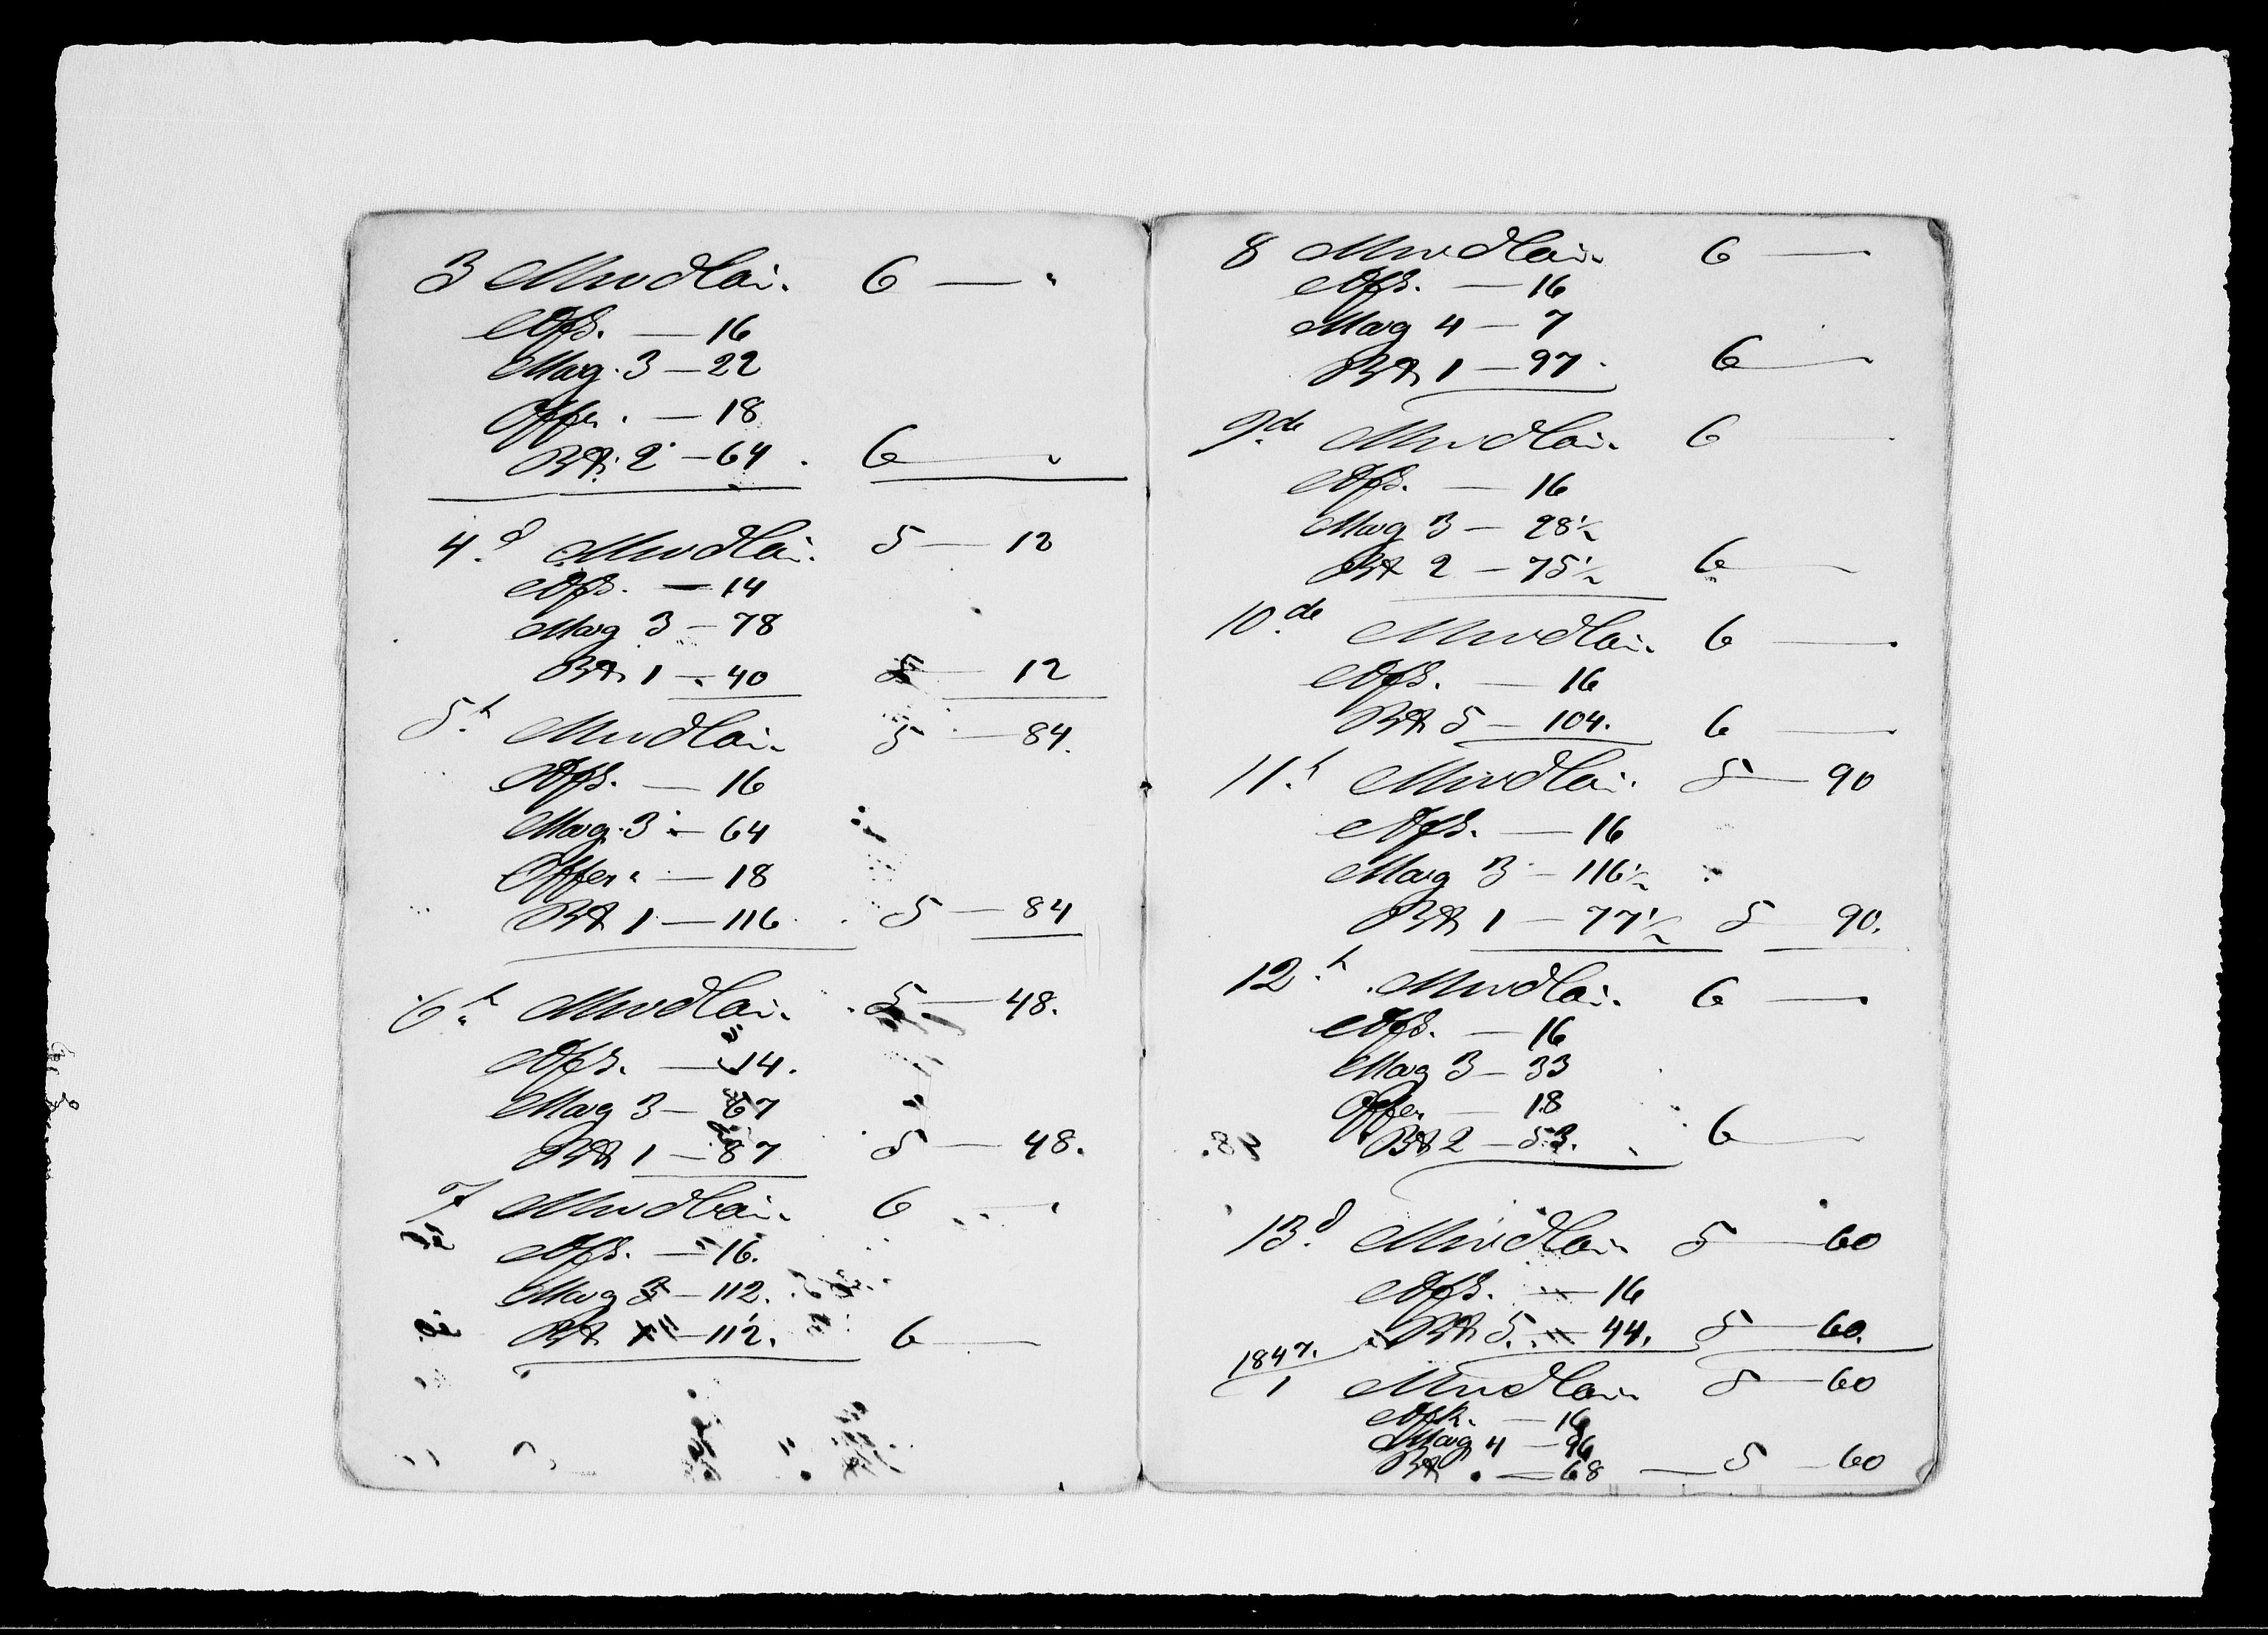 3 Mundlai. 6 — "
Afs. — 16
Mag. 3 — 22
Offer. — 18
Bt. 2 — 64. 6 — "
4.d Mundlai. 5 — 12
Afs. — 14
Mag 3 — 78
Bt 1 — 40 5 — 12
5.t Mundlai. 5 — 84.
Afs. — 16
Mag. 3 — 64
Offer. — 18
Bt 1 — 116 5 — 84
6.t Mundlai. 5 — 48.
Afs. — 14.
Mag 3 — 67
Bt 1 — 87 5 — 48.
7 Mundlai. 6 —
Afs. — 16.
Mag 3 — 112.
Bt 1 — 112. 6 —
8 Mundlai. 6 —
Afs. — 16
Mag 4 — 7
Bt 1 — 97. 6 —
9.de Mundlai. 6
Afs. — 16
Mag 3 — 28½
Bt 2 — 75½ 6 —
10.de Mundlai. 6 —
Afs. — 16
Bt 5 — 104. 6 —
11.t Mundlai. 5 — 90
Afs. — 16
Mag 3 — 116½
Bt 1 — 77½ 5 — 90.
12.t Mundlai. 6 —
Afs. — 16
Mag 3 — 33
Offer — 18
Bt 2 — 53. 6 —
13.d Mundlai. 5 — 60
Afs. — 16
Bt 5. — 44. 5 — 60.
1847.
1 Mundlai. 5 — 60
Afk. — 16
Mag 4 — 96
Bt . — 68 — 5 — 60